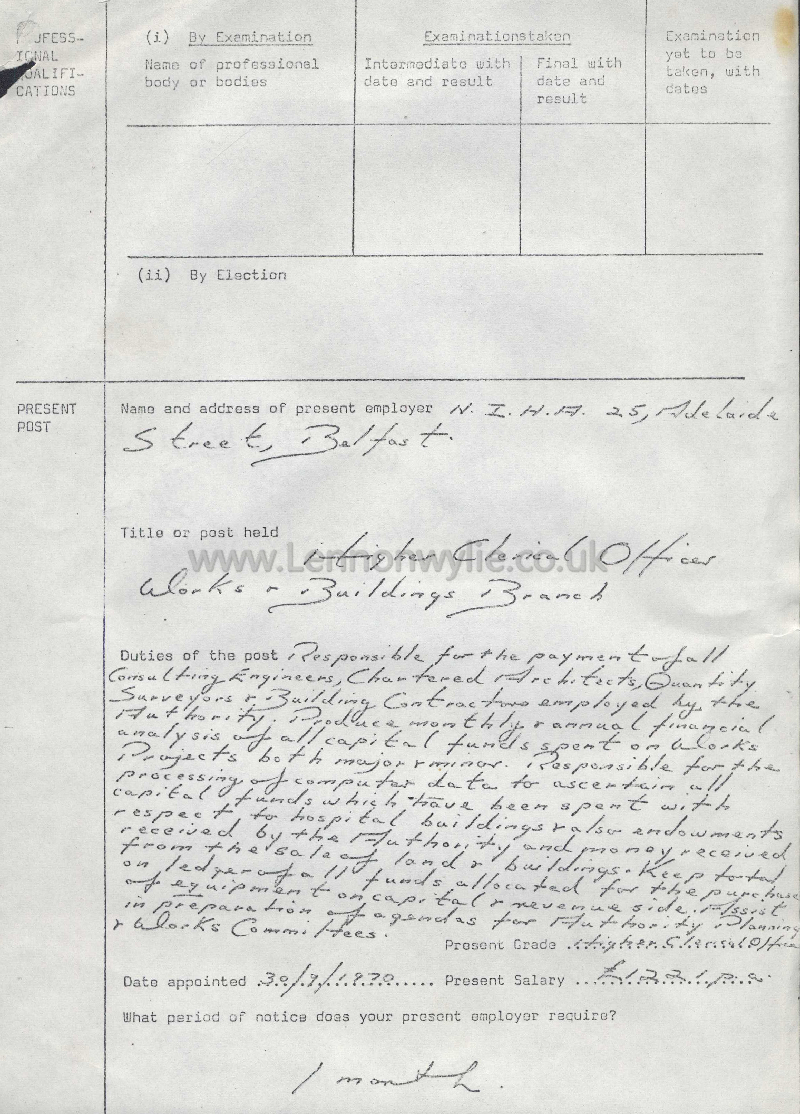 PROFESS-
IONAL
QUALIFI-
CATIONS
(i) By Examination
Name of professional
body or bodies
Examinationstaken
Intermediate with
date and result
Final with
date and
result
Examination
yet to be
taken, with
dates
(ii) By Election
PRESENT
POST
Name and address of present employer N. I. H. A. 25, Adelaide
Street, Belfast.
Title or post held
Higher Clerical Officer
www.Lennonwylie.co.uk
Works & Buildings Branch
Duties of the post Responsible for the payment of all
Consulting Engineers, Chartered Architects, Quantity
Surveyors & Building Contractors employed by the
Authority. Produce monthly & annual financial
analysis of all capital funds spent on Works
Projects both major & minor. Responsible for the
processing of computer data to ascertain all
capital funds which have been spent with
respect to hospital buildings & also endowments
received by the Authority and money received
from the sale of land & buildings. Keep total
on ledger of all funds allocated for the purchase
of equipment on capital & revenue side. Assist
in preparation of agendas for Authority Planning
& Works Committees.
Present Grade Higher Clerical Officer
Date appointed 30/9/1970 Present Salary £1221 p.a.
What period of notice does your present employer require?
1 month.